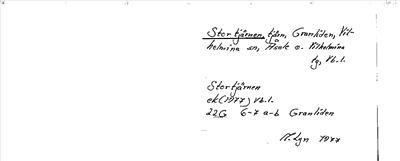 Stortjärnen, tjärn, Granliden, Vil-
helmina sn, Åsele o. Vilhelmina
tg, Vb.l.
Stortjärnen
ek (1977) Vb.l.
22G 6-7 a-b Granliden
1977